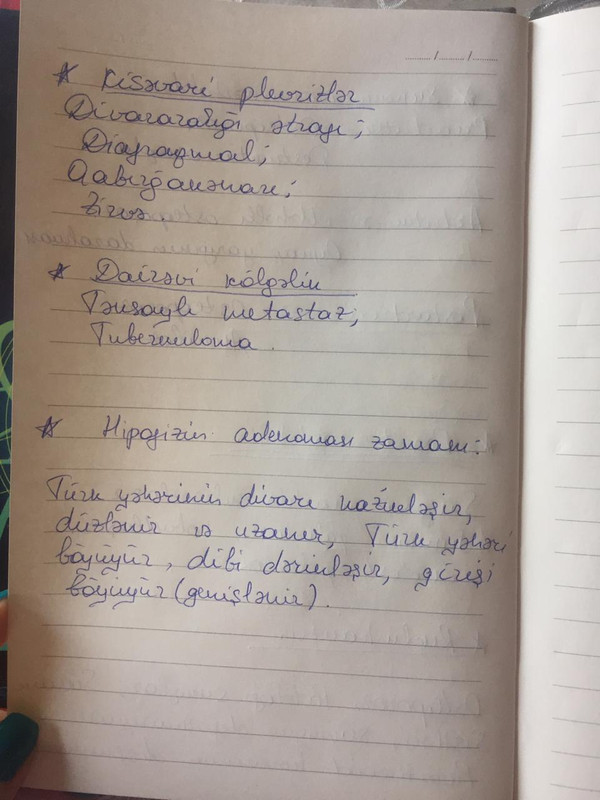 * Kisəvari plevritlər
Divararalığı ətrafı;
Diafraqmal;
Qabırğakənarı;
Zirvə
* Dairəvi kölgəlik
Təksaylı metastaz;
Tuberkuloma.
* Hipofizin adenoması zamanı:
Türk yəhərinin divarı nazikləşir,
düzlənir və uzanır, Türk yəhəri
böyüyür, dibi dərinləşir, girişi
böyüyür (genişlənir).